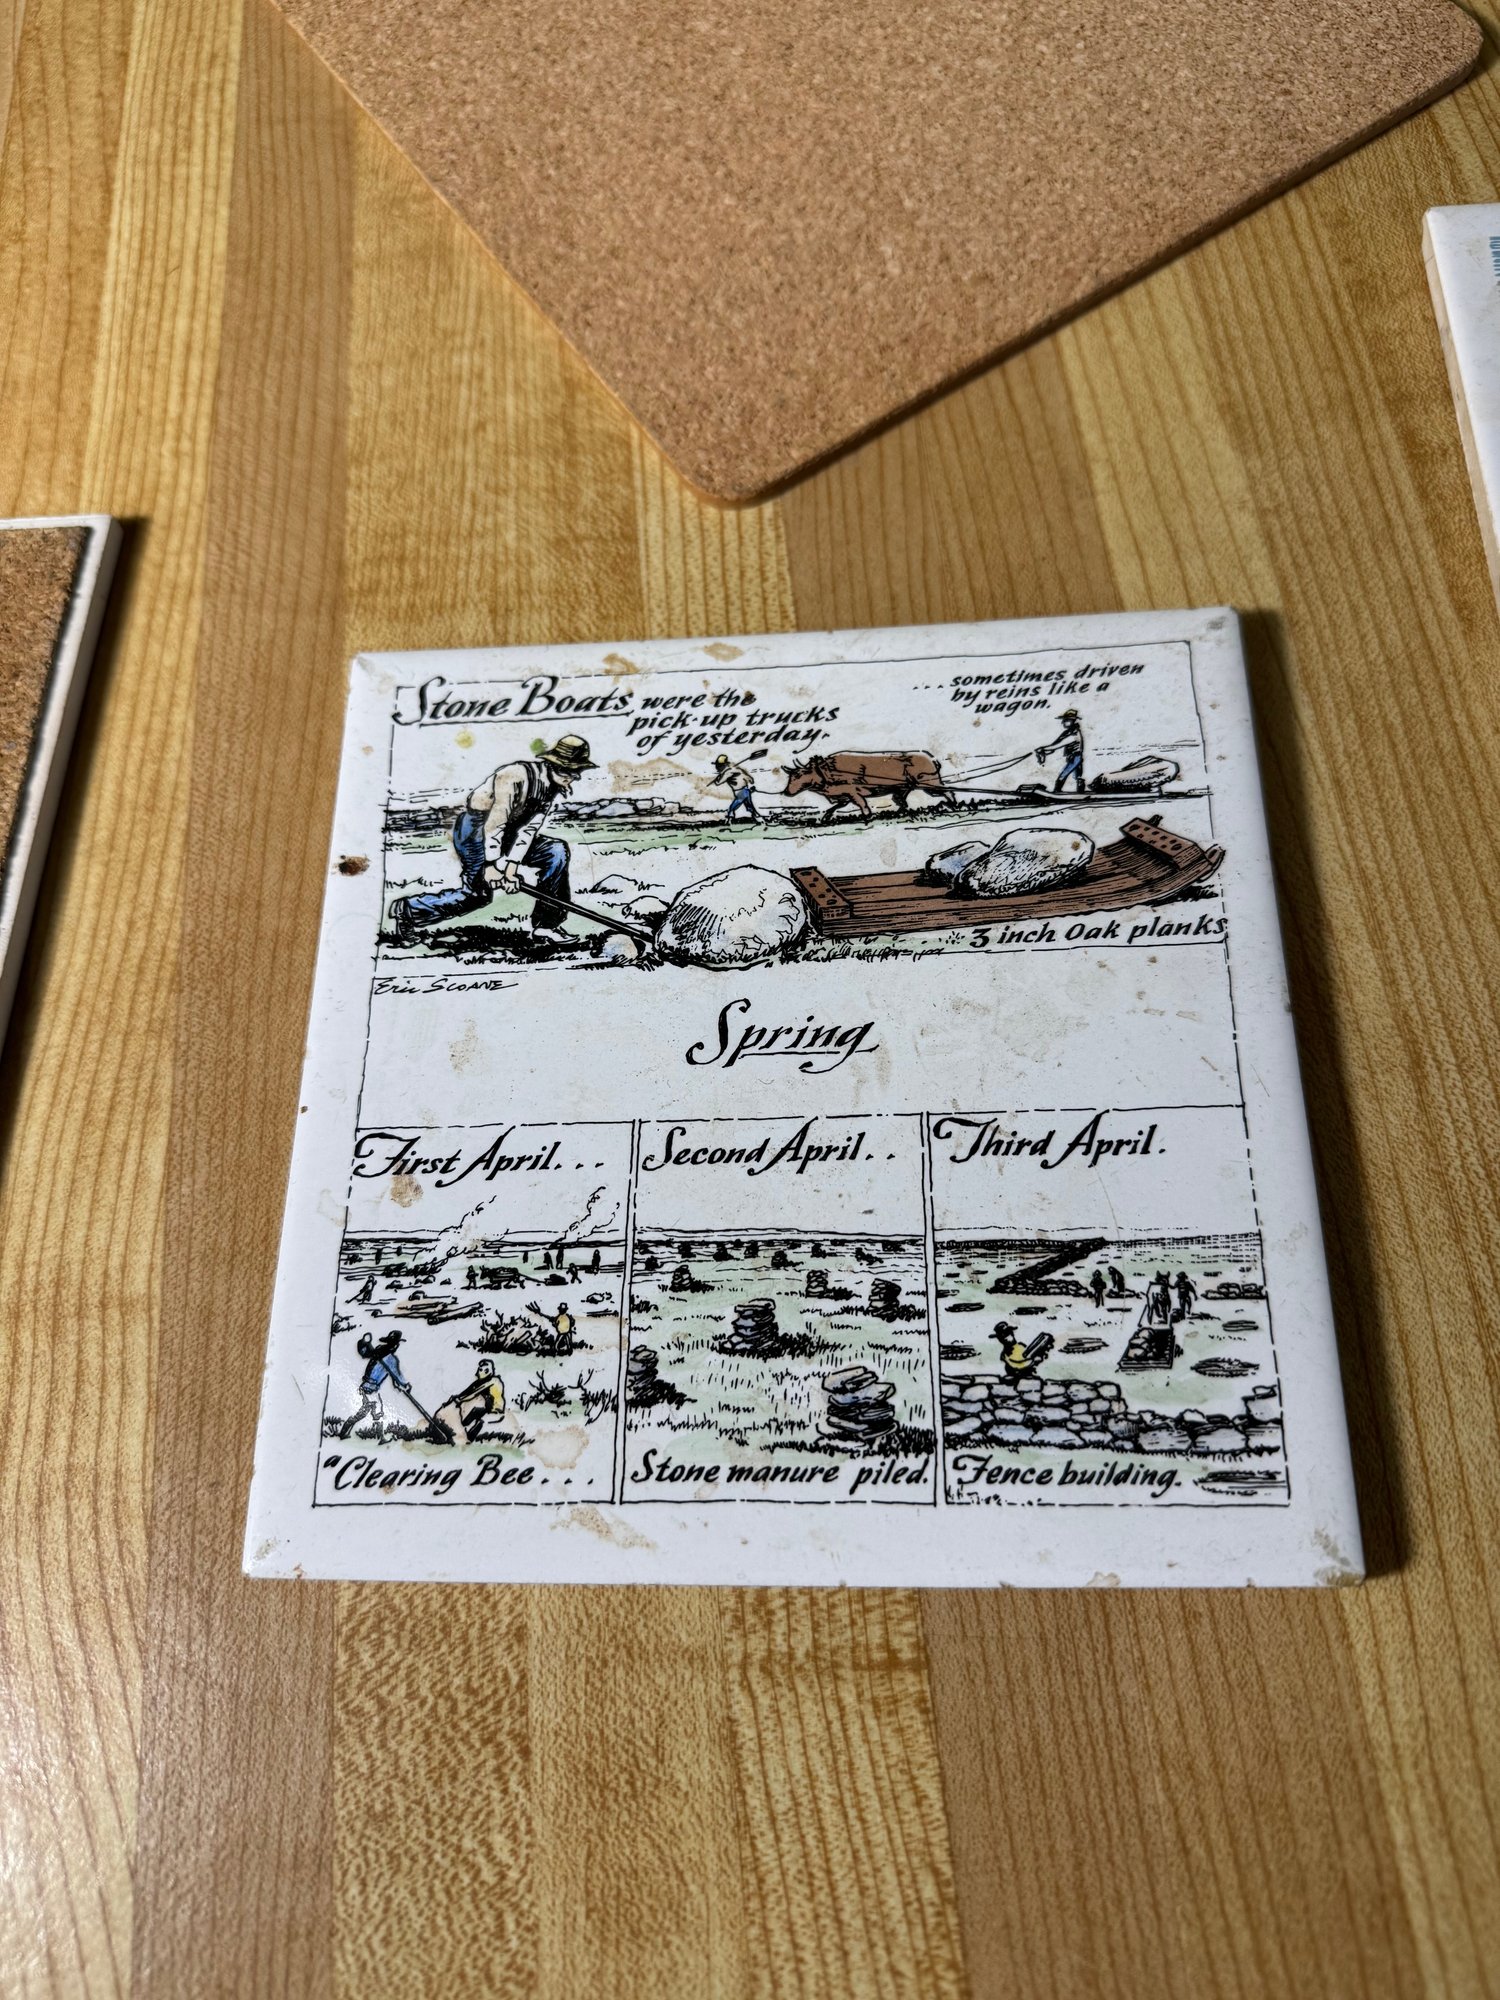 Stone Boats were the
pick-up trucks
of yesterday.
... sometimes driven
by reins like a
wagon.
3 inch Oak planks
Eric Sloane
Spring
First April...
Second April..
Third April.
"Clearing Bee...
Stone manure piled.
Fence building.